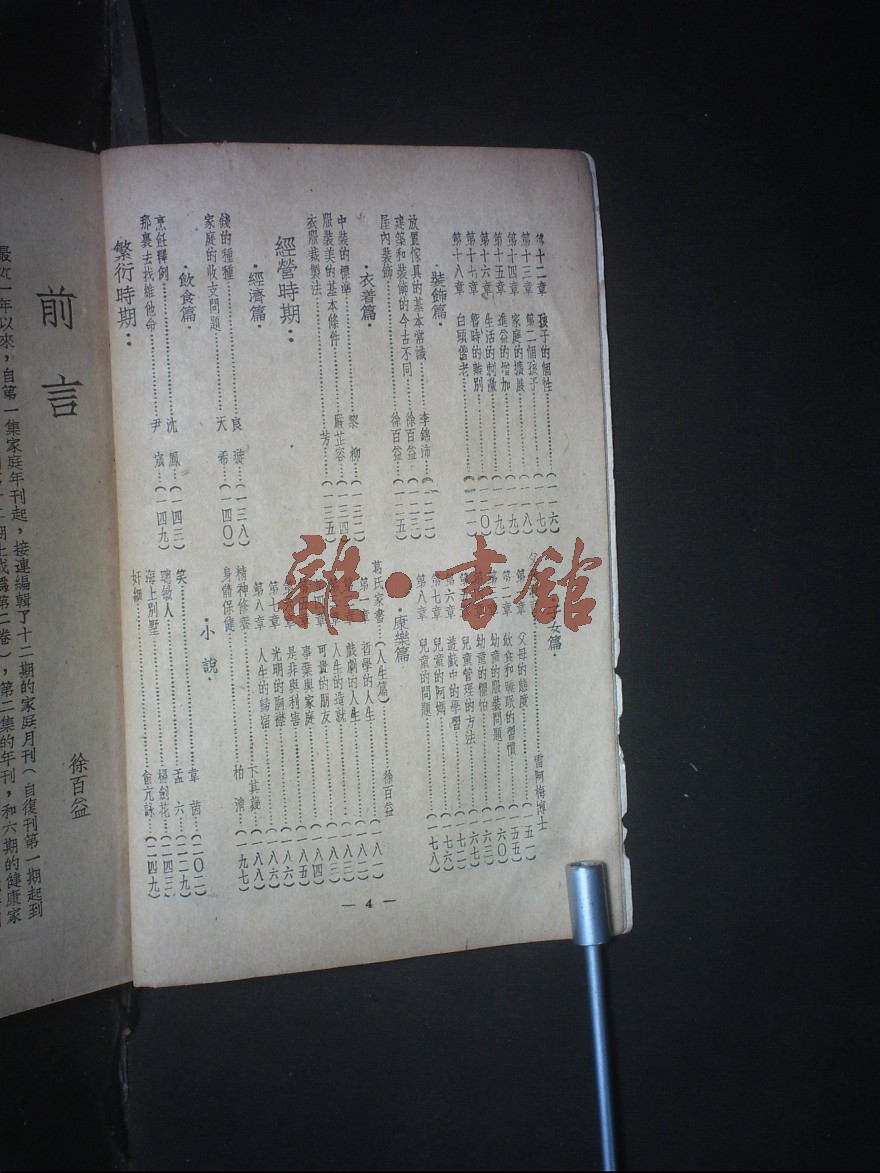 第十二章 孩子的個性……(一一六)
第十三章 第二個孩子……(一一七)
第十四章 家庭的擴展……(一一八)
第十五章 進益的增加……(一一九)
第十六章 生活的刺激……(一二〇)
第十七章 暫時的離別……(一二一)
第十八章 白頭偕老……(一二一)
·裝飾篇·
放置傢具的基本常識……李錦沛……(一二二)
建築和裝飾的今古不同……徐百益……(一二三)
屋內裝飾……徐百益……(一二五)
·衣着篇·
中裝的標準……黎 柳……(一三二)
服裝美的基本條件……嚴芷容……(一三四)
衣服裁製法……芳……(一三五)
經營時期：
·經濟篇·
錢的種種……良 璇……(一三八)
家庭的收支問題……天 希……(一四〇)
·飲食篇·
烹飪釋例……沈 鳳……(一四三)
那裏去找維他命……尹 宬……(一四九)
繁衍時期：
子女篇·
雷阿梅博士
第一章 父母的態度……(一五一)
第二章 飲食和睡眠的習慣……(一五五)
幼童的服裝問題……(一六〇)
幼童的懼怕……(一六三)
兒童管理的方法……(一六七)
第六章 遊戲中的學習……(一七二)
第七章 兒童的阿媽……(一七六)
第八章 兒童的問題……(一七八)
·康樂篇
葛氏家書……(人生篇)……徐百益……(一八一)
第一章 哲學的人生……(一八二)
戲劇的人生……(一八二)
人生的造就……(一八三)
第四章 可貴的朋友……(一八四)
事業與家庭……(一八五)
第六章 是非與利害……(一八六)
第七章 光明的胸襟……(一八六)
第八章 人生的歸宿……(一八八)
精神修養……卞其薿……(一八八)
身體保健……柏 濤……(一九七)
·小說·
笑……韋 茵……(二〇二)
聰敏人……孟 六……(二二九)
海上別墅……楊劍花……(二四三)
奸細……俞亢詠……(二四九)
— 4 —
前言
徐百益
最近一年以來，自第一集家庭年刊起，接連編輯了十二期的家庭月刊（自復刊第一期起到
期止成爲第二卷），第二集的年刊，和六期的健康家
雜·書館